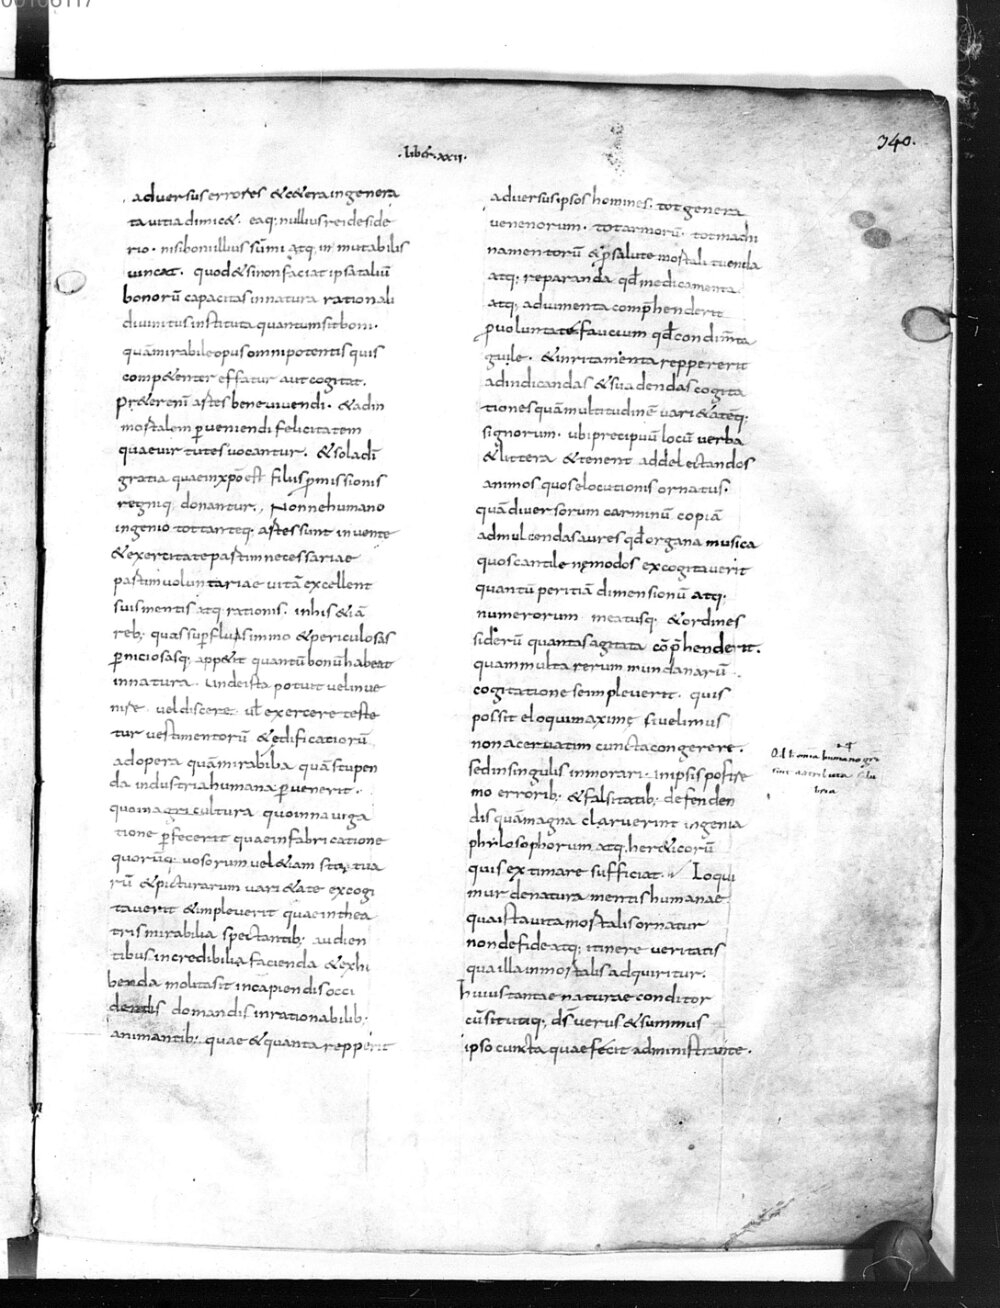 .liber.xxii.
340.
adversus errores & cetera ingenera
ta vitia dimic&. eaq; nullius rei deside
rio. nisi boni illius sūmi atq; inmutabilis
vincat. quod & si non faciat ipsa taliū
bonorū capacitas in natura rationali
divinitus instituta quantum sit boni.
quā mirabile opus omnipotentis quis
comp&enter effatur aut cogitat.
Pr&er enī artes bene vivendi. & ad in
mortalem pveniendi felicitatem
quae virtutes vocantur. & sola dī
gratia quae in xpo est filiis pmissionis
regniq; donantur., Nonne humano
ingenio tot tanteq; artes sunt invente
& exercitate partim necessariae
partim voluntariae ut tā excellent
suis mentis atq; rationis. in his & iā
reb; quas supfluas immo & periculosas
pniciosasq; app&it quantū bonū habeat
in natura. unde ista potuit vel inve
nire vel discere. vl exercere teste
tur vestimentorū & edificatiorū
ad opera quā mirabiba quā stupen
da industria humana pvenerit.
quo in agricultura quo in naviga
tione pfecerit quae in fabricatione
quorūq; vosorum vel &iam statua
rū & picturarum vari&ate excogi
taverit & impleverit quae in thea
tris mirabilia spectantib; audien
tibus incredibilia facienda & exhi
benda molita sit in capiendis occi
dendis domandis inrationabilib;
animantib; quae & quanta repperit
adversus ipsos homines. tot genera
venenorum. tot armorū. tot machi
namentorū & p salute mortali tuenda
atq; reparanda qd medicamenta
atq; adiumenta comphenderit
p voluntate faucium qd condimta
gule. & inritamenta reppererit
ad indicandas & suadendas cogita
tiones quā multitudinē vari&atēq;
signorum. ubi precipuū locū verba
& littera & tenent ad delectandos
animos quos elocutionis ornatus.
quā diversorum carminū copiā
ad mulcendas aures qd organa musica
quos cantilene modos excogitaverit
quantū peritiā dimensionū atq;
numerorum meatusq; & ordines
siderū quanta sagitata cōphenderit.
quam multa rerum mundanarū
cogitatione se impleverit. quis
possit eloqui maxime si velimus
non acervatim cuncta congerere.
sed in singulis inmorari. in ipsis postre
mo errorib; & falsitatib; defenden
dis quā magna claruerint ingenia
philosophorum atq; her&icorū
quis extimare sufficiat. Loqui
mur de natura mentis humanae
qua ista vita mortalis ornatur
non de fide atq; itinere veritatis
qua illa inmortalis adquiritur.
Huius tantae naturae conditor
cū sit utiq; ds verus & summus
ipso cuncta quae fecit administrante.